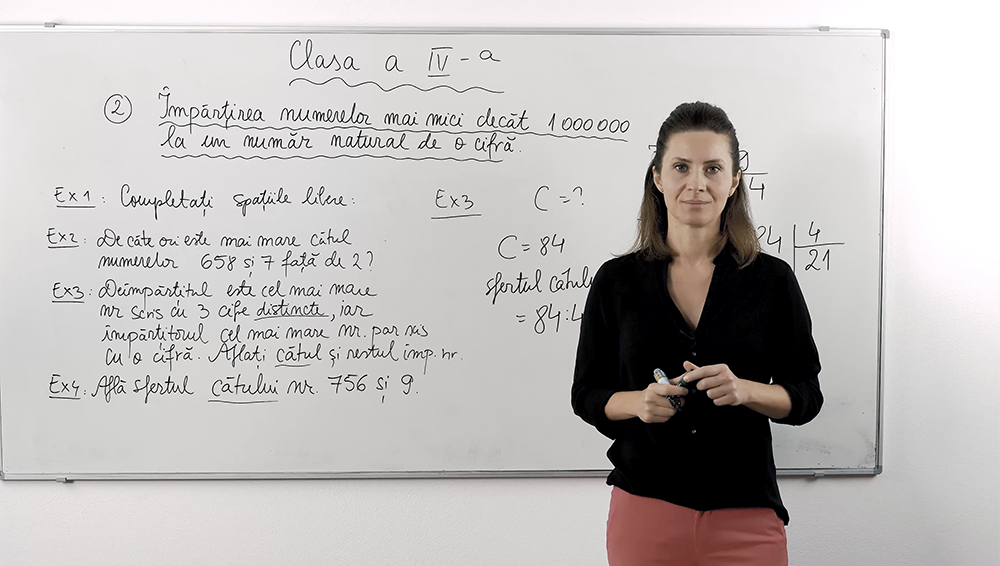 Clasa a IV-a
2 Împărțirea numerelor mai mici decât 1 000 000
la un număr natural de o cifră.
Ex1: Completați spațiile libere:
Ex2: De câte ori este mai mare câtul
numerelor 658 și 7 față de 2?
Ex3: Deîmpărțitul este cel mai mare
nr scris cu 3 cifre distincte, iar
împărțitorul cel mai mare nr. par scris
cu o cifră. Aflați câtul și restul împ. nr.
Ex4: Află sfertul câtului nr. 756 și 9.
Ex3 C = ?
C = 84
sfertul
= 84:4
4
24 4
21